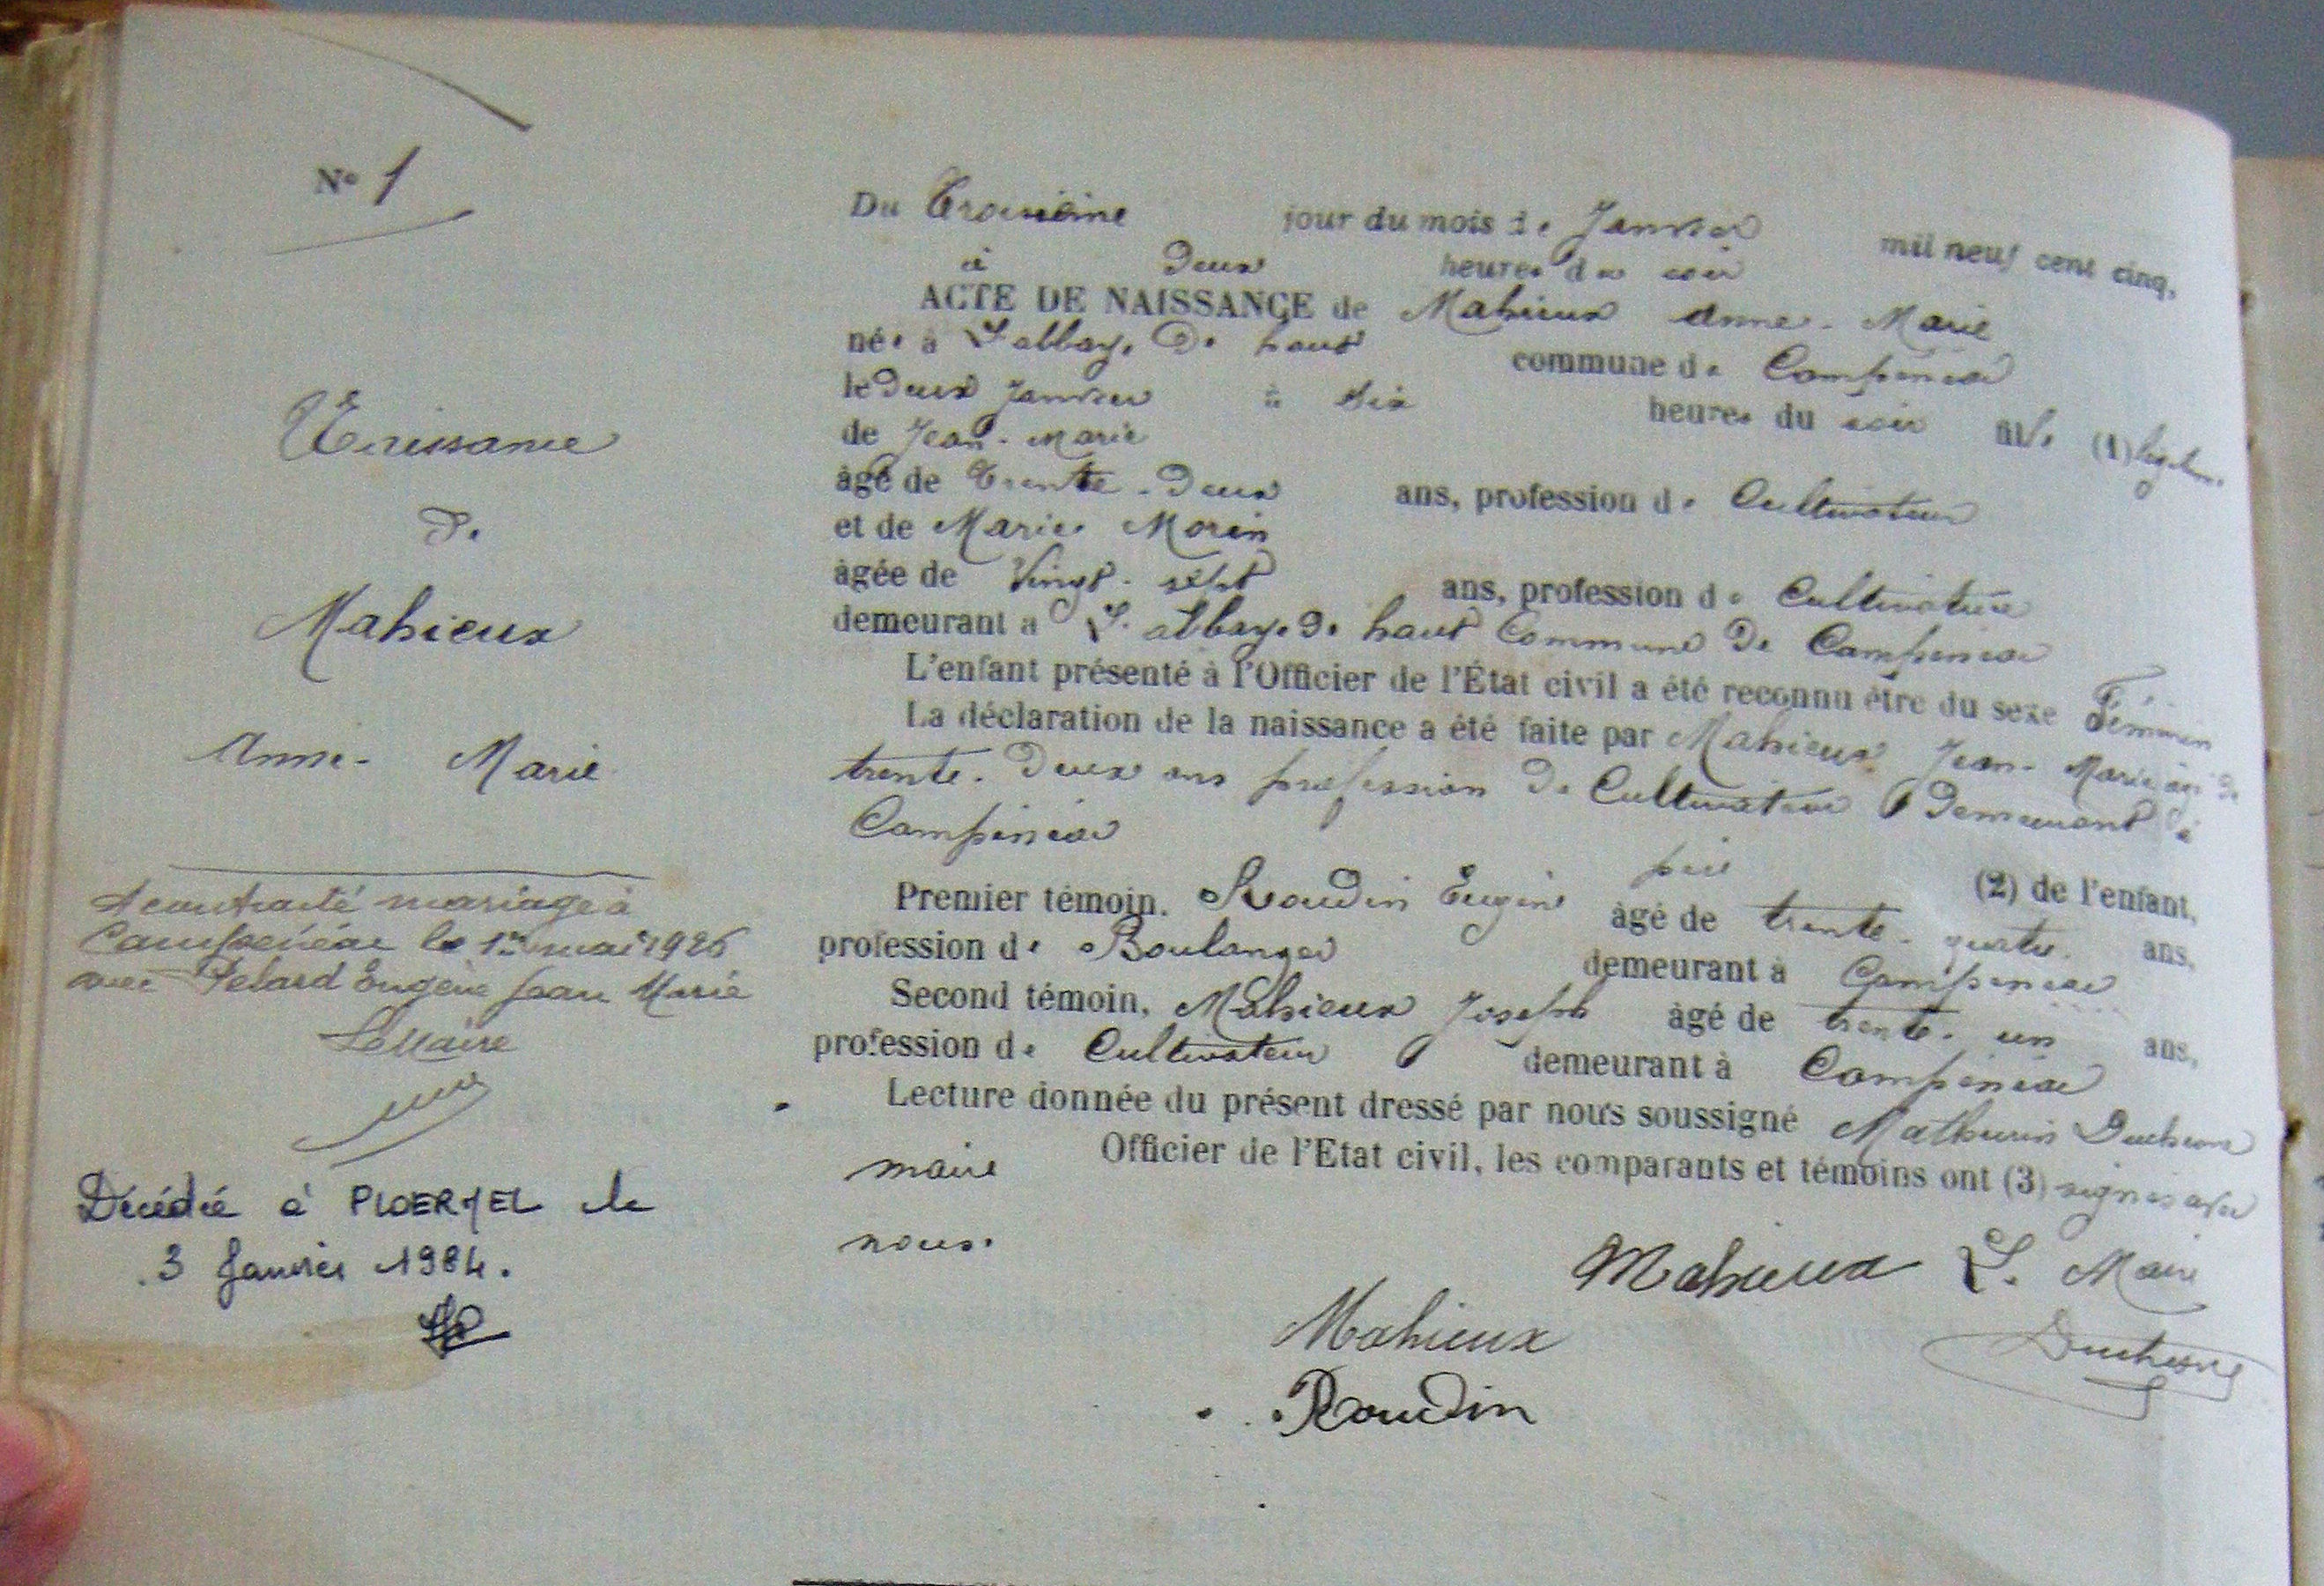 N° 1
Naissance
de
Mahieux
Anne-Marie
A contracté mariage à
Campénéac le 1er mai 1926
avec Pelard Eugène Jean Marie
Le Maire
Décédée à PLOERMEL le
3 Janvier 1984.
Du Troisième jour du mois de Janvier mil neuf cent cinq,
à Deux heures du soir
ACTE DE NAISSANCE de Mahieux Anne-Marie
née à L'abbaye de haut commune de Campénéac
le Deux Janvier à Six heures du soir fille (1) légitime
de Jean-Marie
âgé de Trente-Deux ans, profession de Cultivateur
et de Marie Morin
âgée de Vingt-sept ans, profession de Cultivatrice
demeurant à L'abbaye de haut Commune de Campénéac
L'enfant présenté à l'Officier de l'État civil a été reconnu être du sexe Féminin
La déclaration de la naissance a été faite par Mahieux Jean-Marie âgé de
trente-Deux ans profession de Cultivateur Demeurant à
Campénéac père (2) de l'enfant,
Premier témoin, Roudin Eugène âgé de trente-quatre ans,
profession de Boulanger demeurant à Campénéac
Second témoin, Mahieux Joseph âgé de trente-un ans,
profession de Cultivateur demeurant à Campénéac
Lecture donnée du présent dressé par nous soussigné Mathurin Duchesne
maire Officier de l'Etat civil, les comparants et témoins ont (3) signés avec
nous.
Mahieux L. Maire
Mahieux Duchesne
Roudin